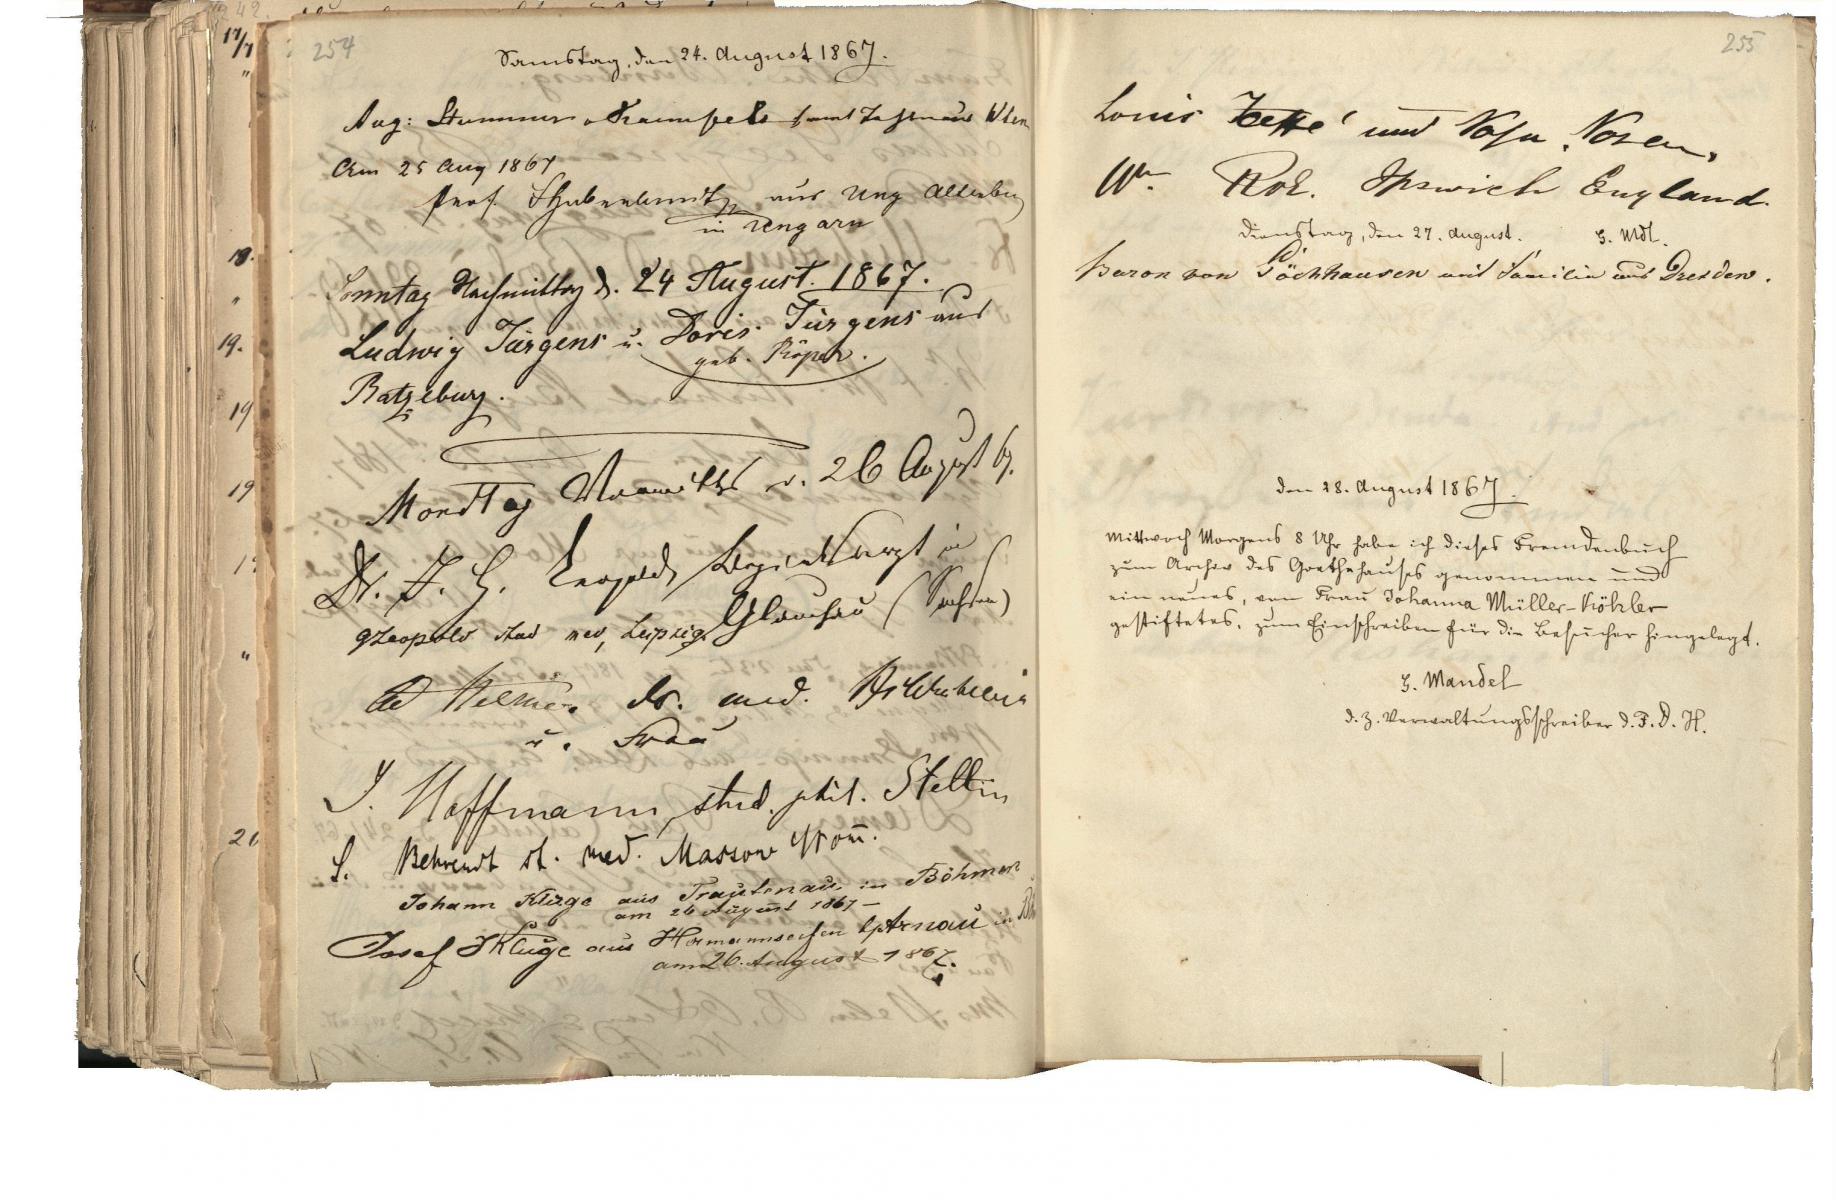 254
Samstag, den 24. August 1867.
Aug: Stummer v Traunfels samt aus Wien
Am 25 Aug 1867
Prof. aus Ung Altenburg
in Ungarn
Sonntag Nachmittag d. 24 August. 1867.
Ludwig Jürgens u. Doris Jürgens aus
geb. Röper.
Ratzeburg.
Mondtag Vormittag d. 26 August 67.
Dr. F. H. Leopold, Bezirksarzt in
Glauchau (Sachsen)
Leopold stud med, Leipzig.
dr. med.
u. Frau
J. Hoffmann, stud. phil. Stettin
S. Behrendt st. med. Massow Pom̅.
Johann Kluge aus Trautenau in Böhmen
am 26 August 1867 –
Josef Kluge aus Hermannseifen Arnau in
am 26. August 1867.
255
Louis und Sohn, Posen.
Wm. Roe. Ipswich England.
Dienstag, den 27. August. G. Mdl.
Baron von Göchhausen mit Familie aus Dresden.
den 28. August 1867.
Mittwoch Morgens 8 Uhr habe ich dieses Fremdenbuch
zum Archiv des Goethehauses genommen und
ein neues, von Frau Johanna Müller-Köhler
gestiftetes, zum Einschreiben für die Besucher hingelegt.
G. Mandel
d. Z. Verwaltungsschreiber d. F. D. H.
17/7
"
18.
"
19.
19
19
"